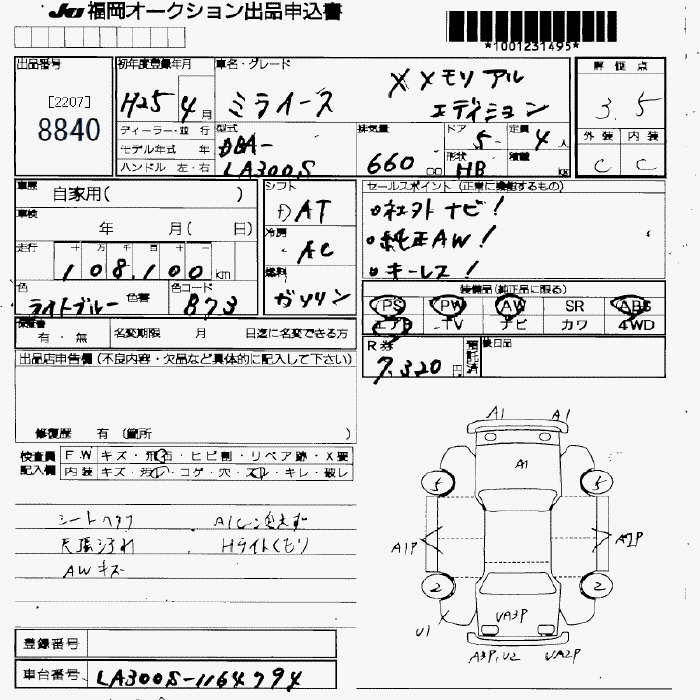 JU 福岡オークション出品申込書
*1001231495*
出品番号
[2207]
8840
初年度登録年月
H25 4月
車名・グレード
ミライース
X メモリアル
エディション
評価点
3.5
外装 内装
C C
ディーラー・並行
モデル年式 年
ハンドル 左・右
型式
DBA-
LA300S
排気量
660 cc
ドア
5
定員
4人
形状
HB
積載
kg
車歴
自家用( )
車検
年 月( 日)
走行
十 万 千 百 十 一
108,100 km
色
ライトブルー
色替
色コード
B73
シフト
DAT
冷房
AC
燃料
ガソリン
セールスポイント (正常に機能するもの)
社外ナビ!
純正AW!
キーレス!
装備品(純正品に限る)
PS PW AW SR ABS
エアB TV ナビ カワ 4WD
保証書
有・無
名変期限 月 日迄に名変できる方
R券
7,320円
預託済
後日品
出品店申告欄(不良内容・欠品など具体的に記入して下さい)
修復歴 有 (箇所 )
検査員
記入欄
FW キズ・飛石・ヒビ割・リペア跡・X要
内装 キズ・汚れ・コゲ・穴・スレ・キレ・破レ
シートヘタリ
天張汚れ
Hライトくもり
AWキズ
A1 A1
A1
5 5
A1P
2 2
U1
UA3P
A3P,U2 UA2P
登録番号
車台番号 LA300S-1164794